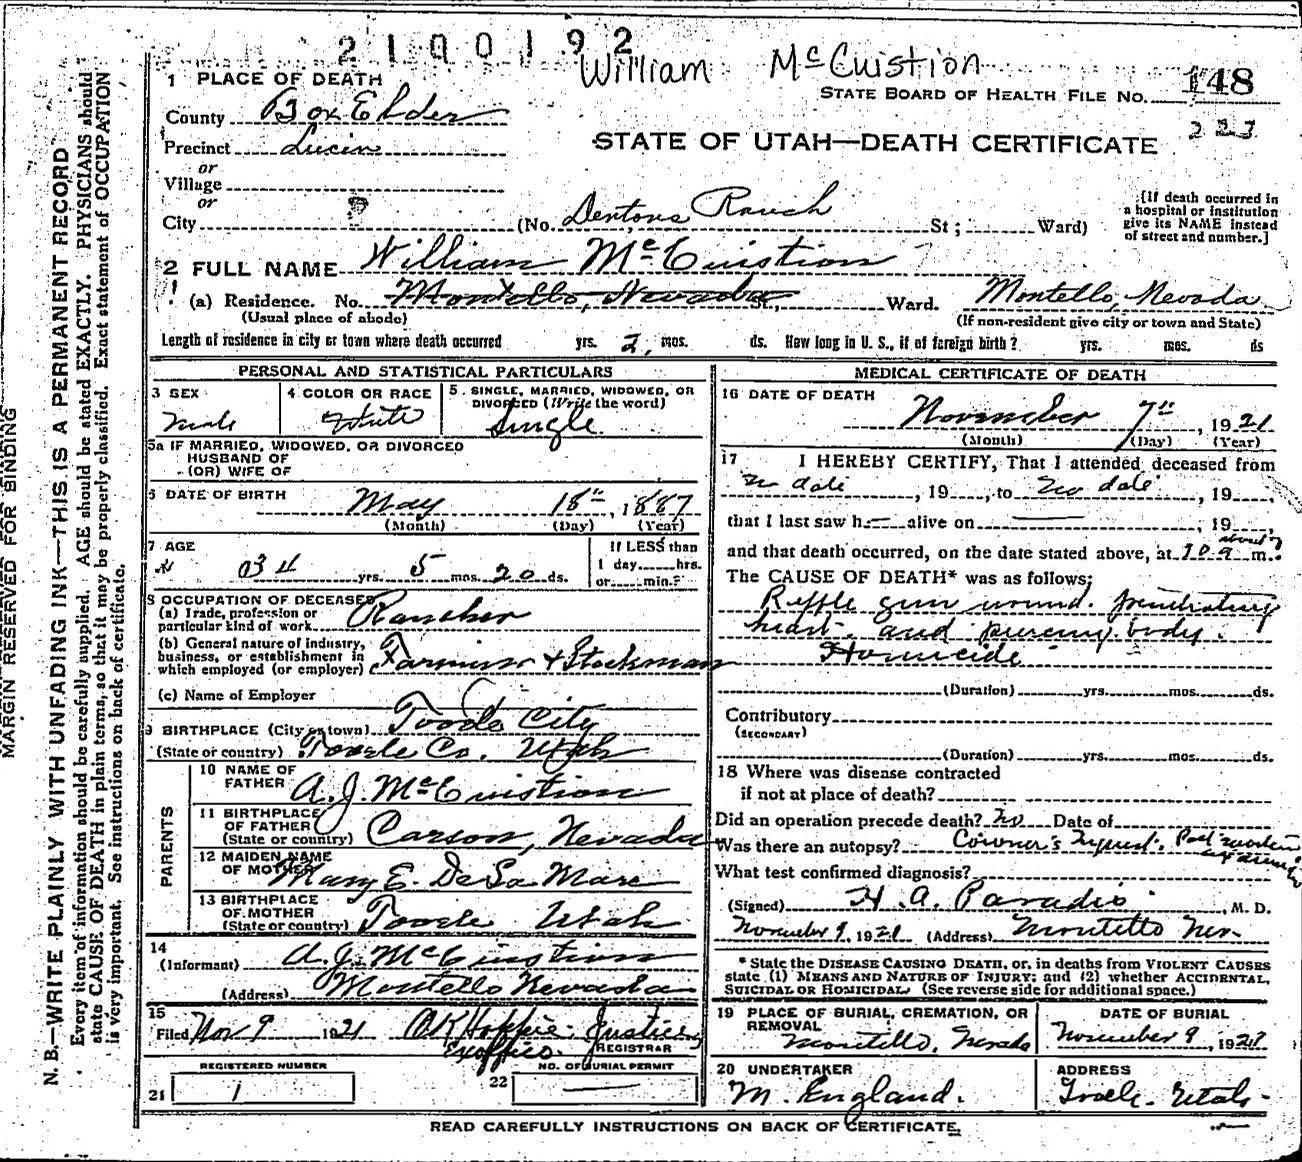 2100192
William McCuistion
1 PLACE OF DEATH
STATE BOARD OF HEALTH FILE NO. 148
223
County Box Elder
STATE OF UTAH—DEATH CERTIFICATE
Precinct Lucin
or
Village
or
City (No. Dentons Ranch St; Ward)
[If death occurred in a hospital or institution give its NAME instead of street and number.]
2 FULL NAME William McCuistion
(a) Residence. No. Montello, Nevada St., Ward. Montello, Nevada
(Usual place of abode) (If non-resident give city or town and State)
Length of residence in city or town where death occurred yrs. 2, mos. ds. How long in U. S., if of foreign birth? yrs. mos. ds
PERSONAL AND STATISTICAL PARTICULARS
3 SEX Male
4 COLOR OR RACE White
5 SINGLE, MARRIED, WIDOWED, OR DIVORCED (Write the word) Single
5a IF MARRIED, WIDOWED, OR DIVORCED
HUSBAND OF
(OR) WIFE OF
6 DATE OF BIRTH May 18th, 1887
(Month) (Day) (Year)
7 AGE 34 yrs. 5 mos. 20 ds.
If LESS than
1 day hrs.
or min.?
8 OCCUPATION OF DECEASED
(a) Trade, profession or
particular kind of work Rancher
(b) General nature of industry,
business, or establishment in
which employed (or employer) Farming & Stockman
(c) Name of Employer
9 BIRTHPLACE (City or town) Tooele City
(State or country) Tooele Co. Utah
PARENTS
10 NAME OF
FATHER A. J. McCuistion
11 BIRTHPLACE
OF FATHER
(State or country) Carson, Nevada
12 MAIDEN NAME
OF MOTHER Mary E. DeLa Mare
13 BIRTHPLACE
OF MOTHER
(State or country) Tooele Utah
14
(Informant) A. J. McCuistion
(Address) Montello Nevada
15
Filed Nov 9 1921 Justice
Exofficio REGISTRAR
REGISTERED NUMBER
21 1
NO. OF BURIAL PERMIT
22
MEDICAL CERTIFICATE OF DEATH
16 DATE OF DEATH
November 7th, 1921
(Month) (Day) (Year)
17 I HEREBY CERTIFY, That I attended deceased from
no date, 19, to no date, 19,
that I last saw h alive on , 19,
and that death occurred, on the date stated above, at about 10 a m.
The CAUSE OF DEATH* was as follows:
Riffle gun wound. penetrating
heart and piercing body.
Homicide
(Duration) yrs. mos. ds.
Contributory
(SECONDARY)
(Duration) yrs. mos. ds.
18 Where was disease contracted
if not at place of death?
Did an operation precede death? No Date of
Was there an autopsy? Coroner's Inquest. Post mortem
What test confirmed diagnosis?
(Signed) H. A. Paradis, M. D.
November 9, 1921 (Address) Montello Nev.
* State the DISEASE CAUSING DEATH, or, in deaths from VIOLENT CAUSES
state (1) MEANS AND NATURE OF INJURY; and (2) whether ACCIDENTAL,
SUICIDAL OR HOMICIDAL. (See reverse side for additional space.)
19 PLACE OF BURIAL, CREMATION, OR
REMOVAL Montello, Nevada
DATE OF BURIAL
November 9, 1921
20 UNDERTAKER
M. England.
ADDRESS
Tooele - Utah -
READ CAREFULLY INSTRUCTIONS ON BACK OF CERTIFICATE.
MARGIN RESERVED FOR BINDING
N. B.—WRITE PLAINLY WITH UNFADING INK—THIS IS A PERMANENT RECORD
Every item of information should be carefully supplied. AGE should be stated EXACTLY. PHYSICIANS should
state CAUSE OF DEATH in plain terms, so that it may be properly classified. Exact statement of OCCUPATION
is very important. See instructions on back of certificate.